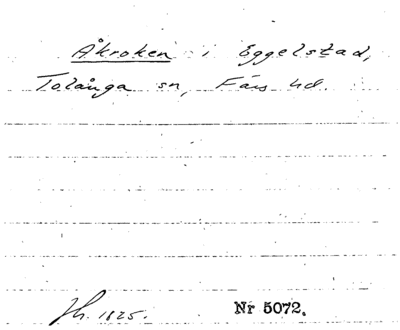 Åkroken i Eggelstad,
Tolånga sn, Färs hd.
Jh. 1825. Nr 5072.